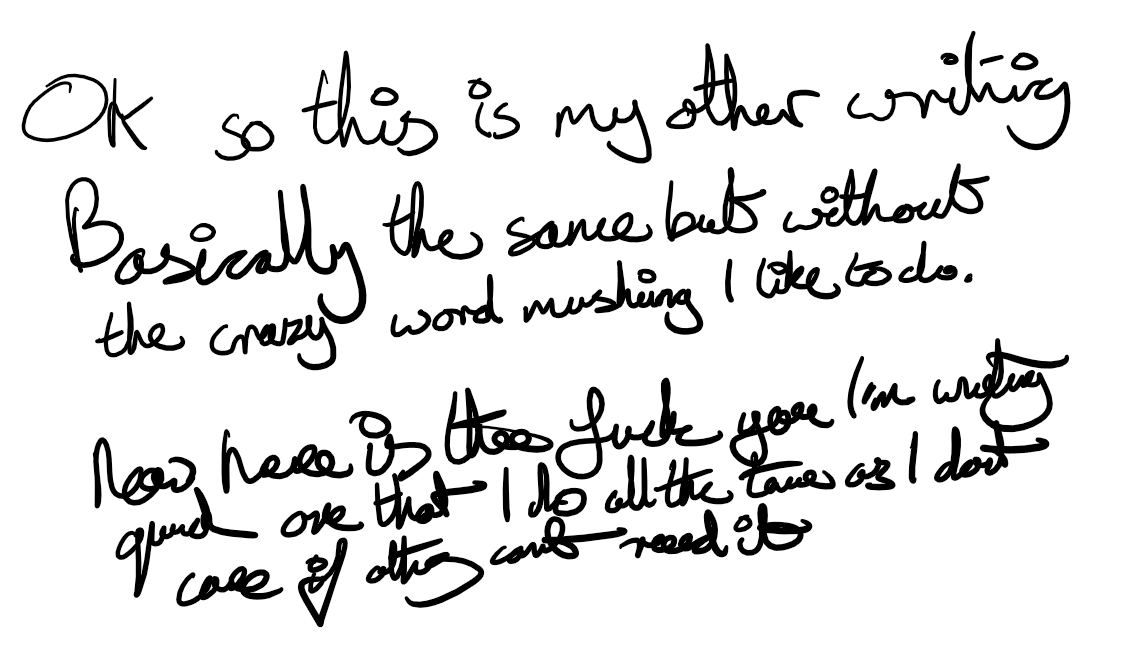 OK so this is my other writing
Basically the same but without
the crazy word mushing I like to do.
Now here is the fuck you I'm writing
quick one that I do all the time as I don't
care if others can't read it